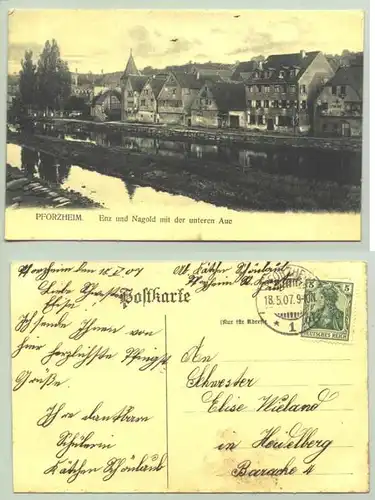 PFORZHEIM. Enz und Nagold mit der unteren Aue
Pforzheim den 18.5.07
Postkarte
(Nur für Adresse)
Liebe Schwester
Elise
Ich sende Ihnen von
hier herzlichste Pfingst
Grüße.
Ihre dankbare
Schülerin
Käthchen Schönlaub
Abs. Käthchen Schönlaub
Pforzheim
18.5.07.9-10V.
* 1
5 5
DEUTSCHES REICH
An
Schwester
Elise Wieland
in Heidelberg
Baracke 4